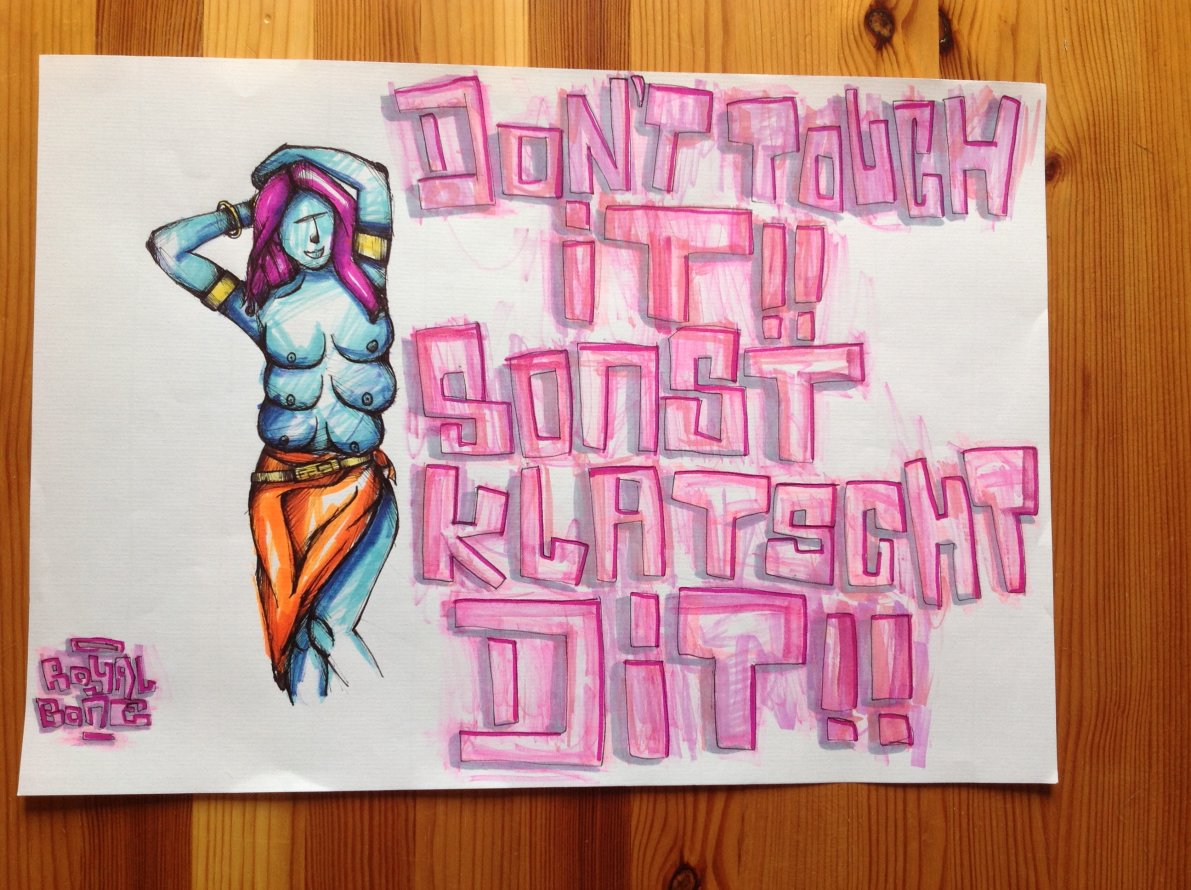 DON'T TOUCH
iT!!
SONST
KLATSCHT
DiT!!
ROYAL
BONE